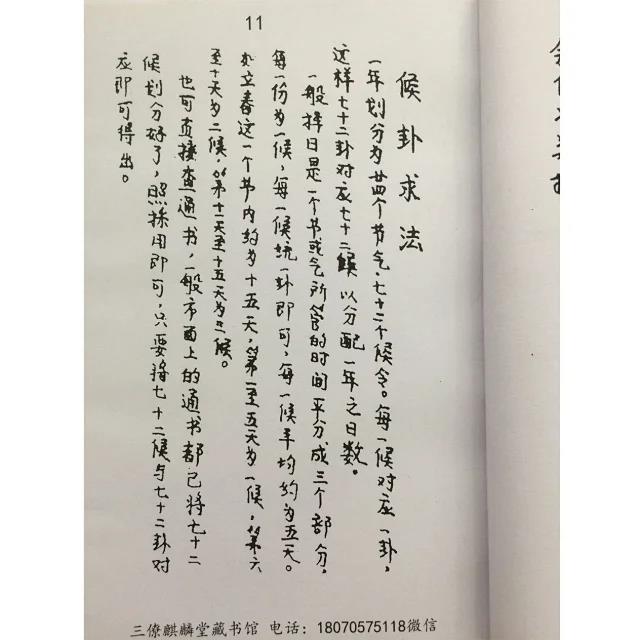 11
候卦求法
一年划分为廿四个节气，七十二个候令。每一候对应一卦，
这样七十二卦对应七十二候以分配一年之日数。
一般择日是一个节或气所管的时间平分成三个部分，
每一份为一候，每一候统一卦即可，每一候平均约为五天。
如立春这一个节内约为十五天，第一至五天为一候，第六
至十天为二候，第十一天至十五天为三候。
也可直接查通书，一般市面上的通书都已将七十二
候划分好了，照採用即可，只要将七十二候与七十二卦对
应即可得出。
三僚麒麟堂藏书馆 电话：18070575118微信